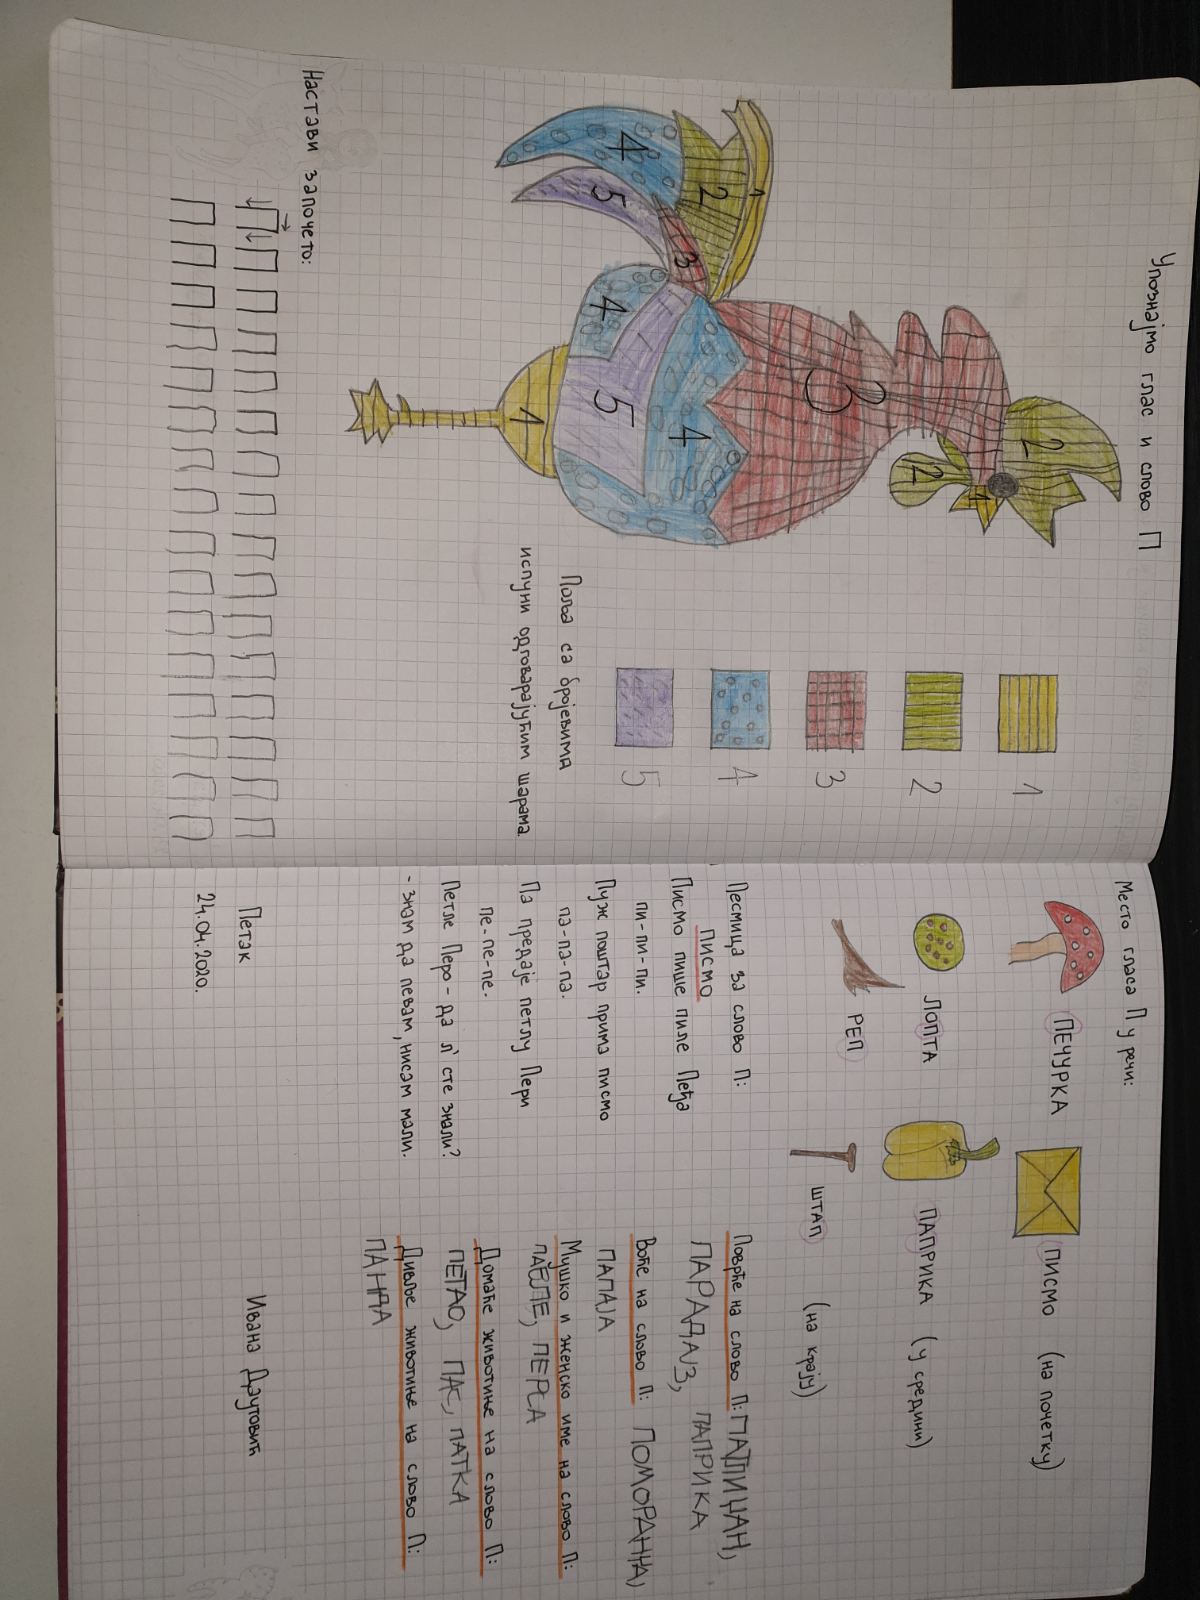 Упознајмо глас и слово П
1
2
3
4
5
2
2
1
3
4
5
4
1
3
2
1
4
5
Поља са бројевима
испуни одговарајућим шарама.
Настави започето:
Место гласа П у речи:
ПЕЧУРКА
ПИСМО
(на почетку)
ЛОПТА
ПАПРИКА
(у средини)
РЕП
ШТАП
(на крају)
Песмица за слово П:
ПИСМО
Писмо пише пиле Пеђа
пи-пи-пи.
Пуж поштар прима писмо
па-па-па.
Па предаје петлу Пери
пе-пе-пе.
Петле Перо - да л' сте знали?
- знам да певам, нисам мали.
Поврће на слово П: ПАТЛИЏАН,
ПАРАДАЈЗ, ПАПРИКА
Воће на слово П: ПОМОРАНЏА,
ПАПАЈА
Мушко и женско име на слово П:
ПАВЛЕ, ПЕРСА
Домаће животиње на слово П:
ПЕТАО, ПАС, ПАТКА
Дивље животиње на слово П:
ПАНДА
Петак
24.04.2020.
Ивана Даутовић